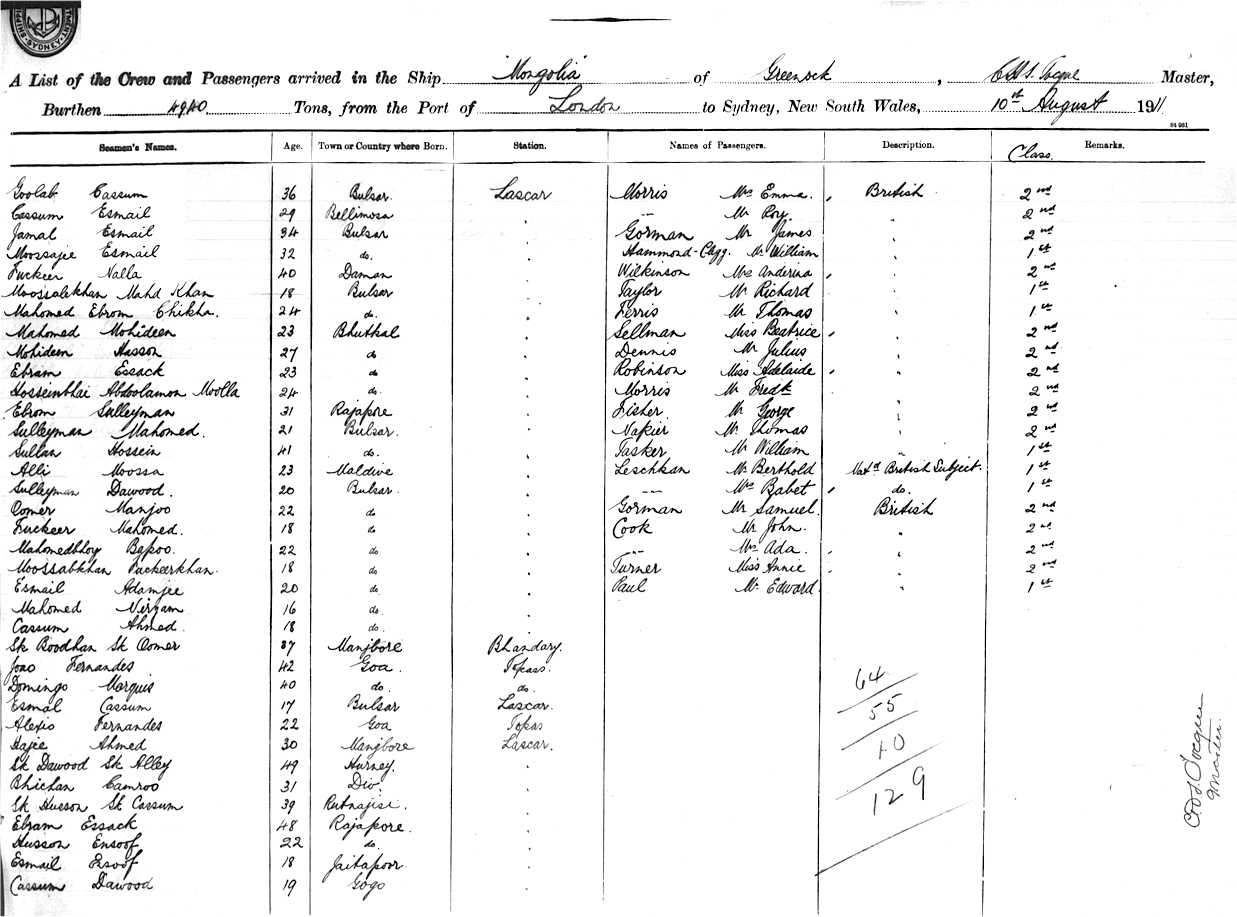 SYDNEY
A List of the Crew and Passengers arrived in the Ship Mongolia of Greenock, Master,
Burthen 4940 Tons, from the Port of London to Sydney, New South Wales, 10th August 1911
84 981
Seamen's Names. Age. Town or Country where Born. Station. Names of Passengers. Description. Class. Remarks.
Goolab Cassum 36 Bulsar. Lascar Morris Mrs Emma. British 2nd
Cassum Esmail 29 Bellimosa " — Mr Roy. " 2nd
Jamal Esmail 34 Bulsar " Gorman Mr James " 2nd
Moossajee Esmail 32 do. " Hammond-Clegg. Mr William " 1st
Fuckeer Nalla 40 Daman " Wilkinson Mrs Anderina " 2nd
Moossalekhan Mahd Khan 18 Bulsar " Taylor Mr Richard " 1st
Mahomed Ebrom Chikha. 24 do. " Ferris Mr Thomas " 1st
Mahomed Mohideen 23 Bhutkal " Sellman Miss Beatrice " 2nd
Mohideen Hasson 27 do " Dennis Mr Julius " 2nd
Ebram Essack 23 do " Robinson Miss Adelaide " 2nd
Hosseinbhai Abdoolamon Moolla 24 do. " Morris Mr Fredk " 2nd
Ebrom Sulleyman 31 Rajapore " Fisher Mr George " 2nd
Sulleyman Mahomed. 21 Bulsar. " Napier Mr Thomas " 2nd
Sultan Hossein 41 do. " Tasker Mr William " 1st
Alli Moossa 23 Maldive " Leschkan Mr Berthold Natd British Subject. 1st
Sulleyman Dawood. 20 Bulsar. " — Mrs Babet do. 1st
Oomer Manjoo 22 do " Gorman Mr Samuel. British 2nd
Fuckeer Mahomed. 18 do " Cook Mr John. " 2nd
Mahomedbhoy Bapoo. 22 do " — Mrs Ada. " 2nd
Moossabkhan Fuckeerkhan. 18 do " Turner Miss Annie " 2nd
Esmail Adamjee 20 do " Paul Mr Edward " 1st
Mahomed Virjam 16 do "
Cassum Ahmed. 18 do. "
Sk Boodhan Sk Oomer 37 Manjbore Bhandary.
Joao Fernandes 42 Goa. Topass.
Domingo Marquis 40 do. do.
Esmal Cassum 17 Bulsar Lascar.
Alexio Fernandes 22 Goa Topas
Hajee Ahmed 30 Manjbore Lascar.
Sk Dawood Sk Alley 49 Hurney. "
Bhichan Camroo 31 Div. "
Sk Husson Sk Cassum 39 Rutnajisi. "
Ebram Essack 48 Rajapore. "
Husson Ensoof 22 do. "
Esmail Esoof 18 Jaitapoor "
Cassum Dawood 19 Gogo "
64
55
10
129
Master.